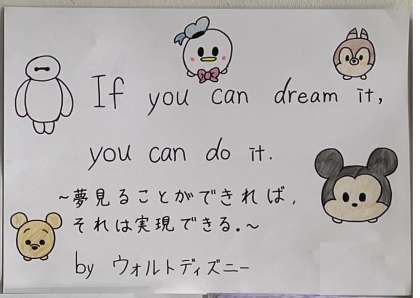 If you can dream it,
you can do it.
~夢見ることができれば、
それは実現できる。~
by ウォルトディズニー